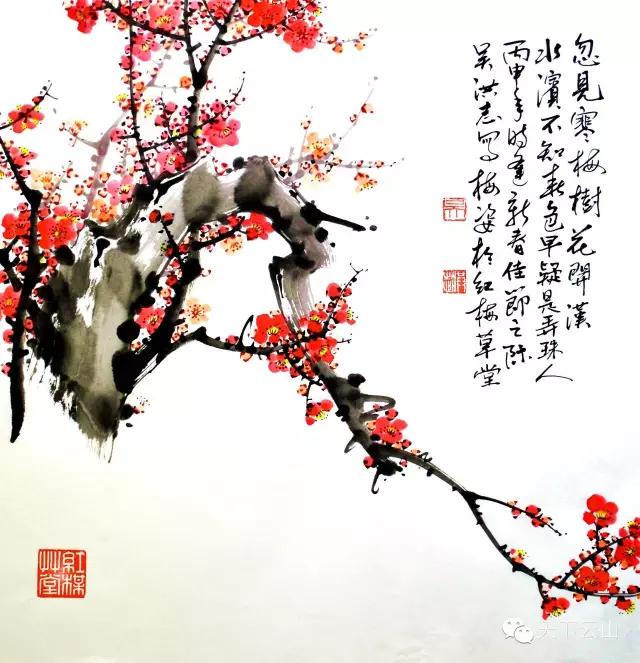 忽見寒梅樹花開漢
水濱不知春色早疑是弄珠人
丙申年時逢新春佳節之際
吴洪志写梅姿於红梅草堂
紅楳艸堂
天下云山